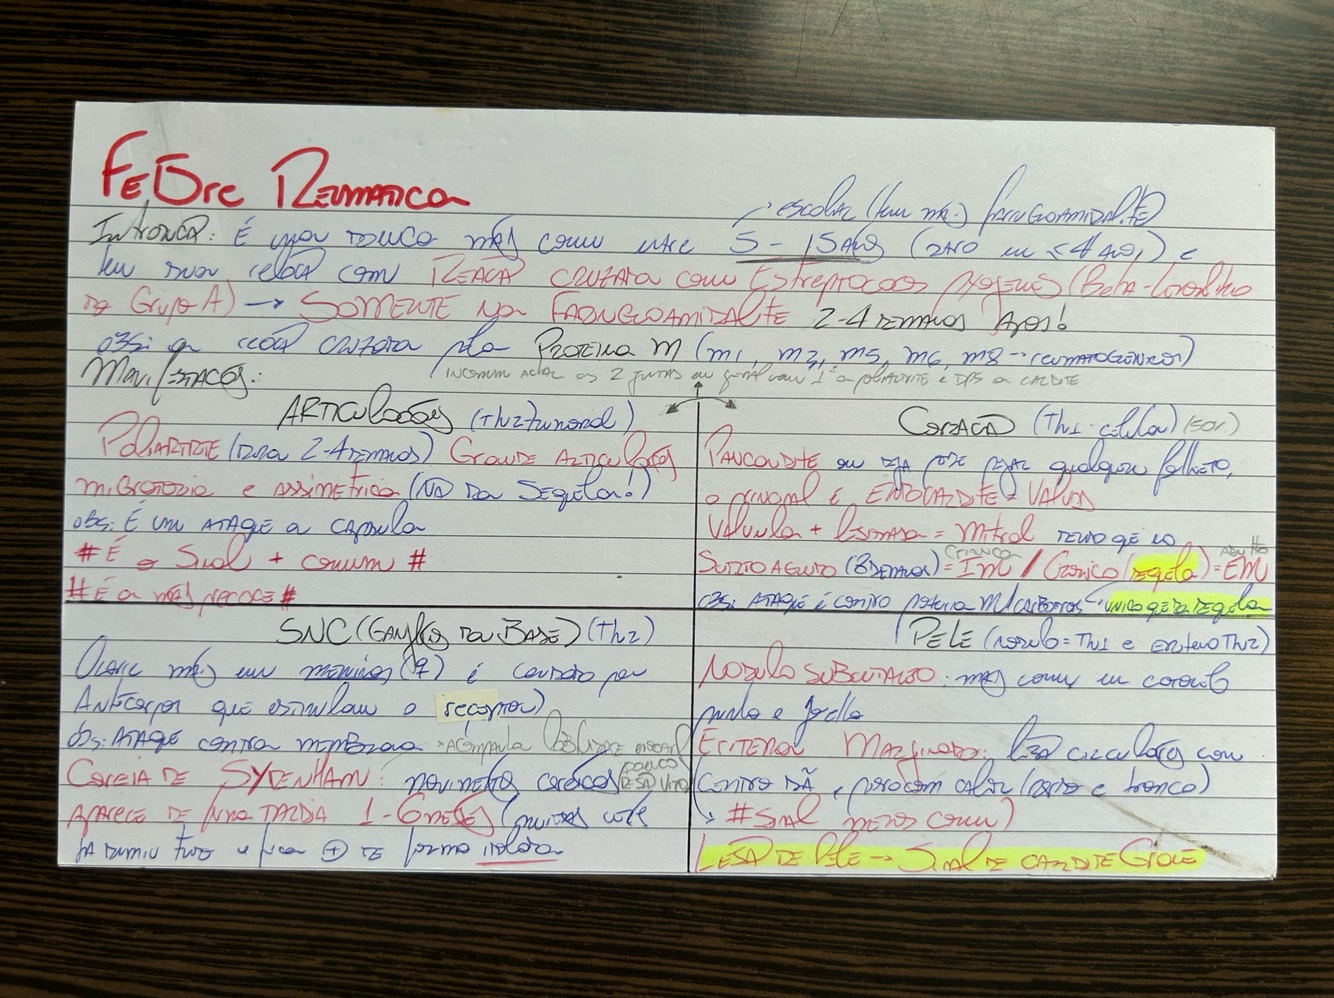 Febre Reumática
→ escolar (tem mais) faringoamidalite
Introdução: É uma doença mais comum entre 5-15 anos (raro em ≤4 anos) e
tem sua relação com Reação cruzada com Estreptococos pyogenes (Beta-hemolítico
do Grupo A) → SOMENTE na FARINGOAMIDALITE 2-4 semanas após!
obs: a reação cruzada pela Proteína M (M1, M3, M5, M6, M8 → reumatogênicos)
Manifestações:
incomum achar as 2 juntas ou geral vem 1º a poliartrite e dps a cardite
ARTICULAÇÕES (Th2 humoral)
Poliartrite (dura 2-4 semanas) Grande Articulações
migratória e assimétrica (Não da Sequela!)
obs: É um ATAQUE a cápsula
# É o Sinal + comum #
# É a mais precoce #
Coração (Th1 célula) (50%)
Pancardite ou seja pode pegar qualquer folheto,
o principal é Endocardite = Valvas
Válvula + lesionada = Mitral sendo que no
criança adulto
Surto agudo (8 semanas) = IM / Crônico (sequela) = EM
obs: Ataque é contra proteína M / carboidratos único que da sequela
SNC (Gânglios da Base) (Th2)
Ocorre mais em meninas (♀) é causado por
Anticorpos que estimulam o receptor)
obs: ATAQUE contra membrana → Acompanha labilidade emocional
Coreia de Sydenham: movimentos coreicos
Aparece de forma tardia 1-6 meses (muitas vezes
já sumiu tudo e fica ⊕ de forma isolada
PELE (nódulo = Th1 e eritema Th2)
Nódulo subcutâneo: mais comum em cotovelo
punho e joelho
Eritema Marginado: lesão circulares com
Centro são, pioram com calor (raro e tronco)
↳ # Sinal menos comum)
Lesão de Pele → Sinal de cardite Grave